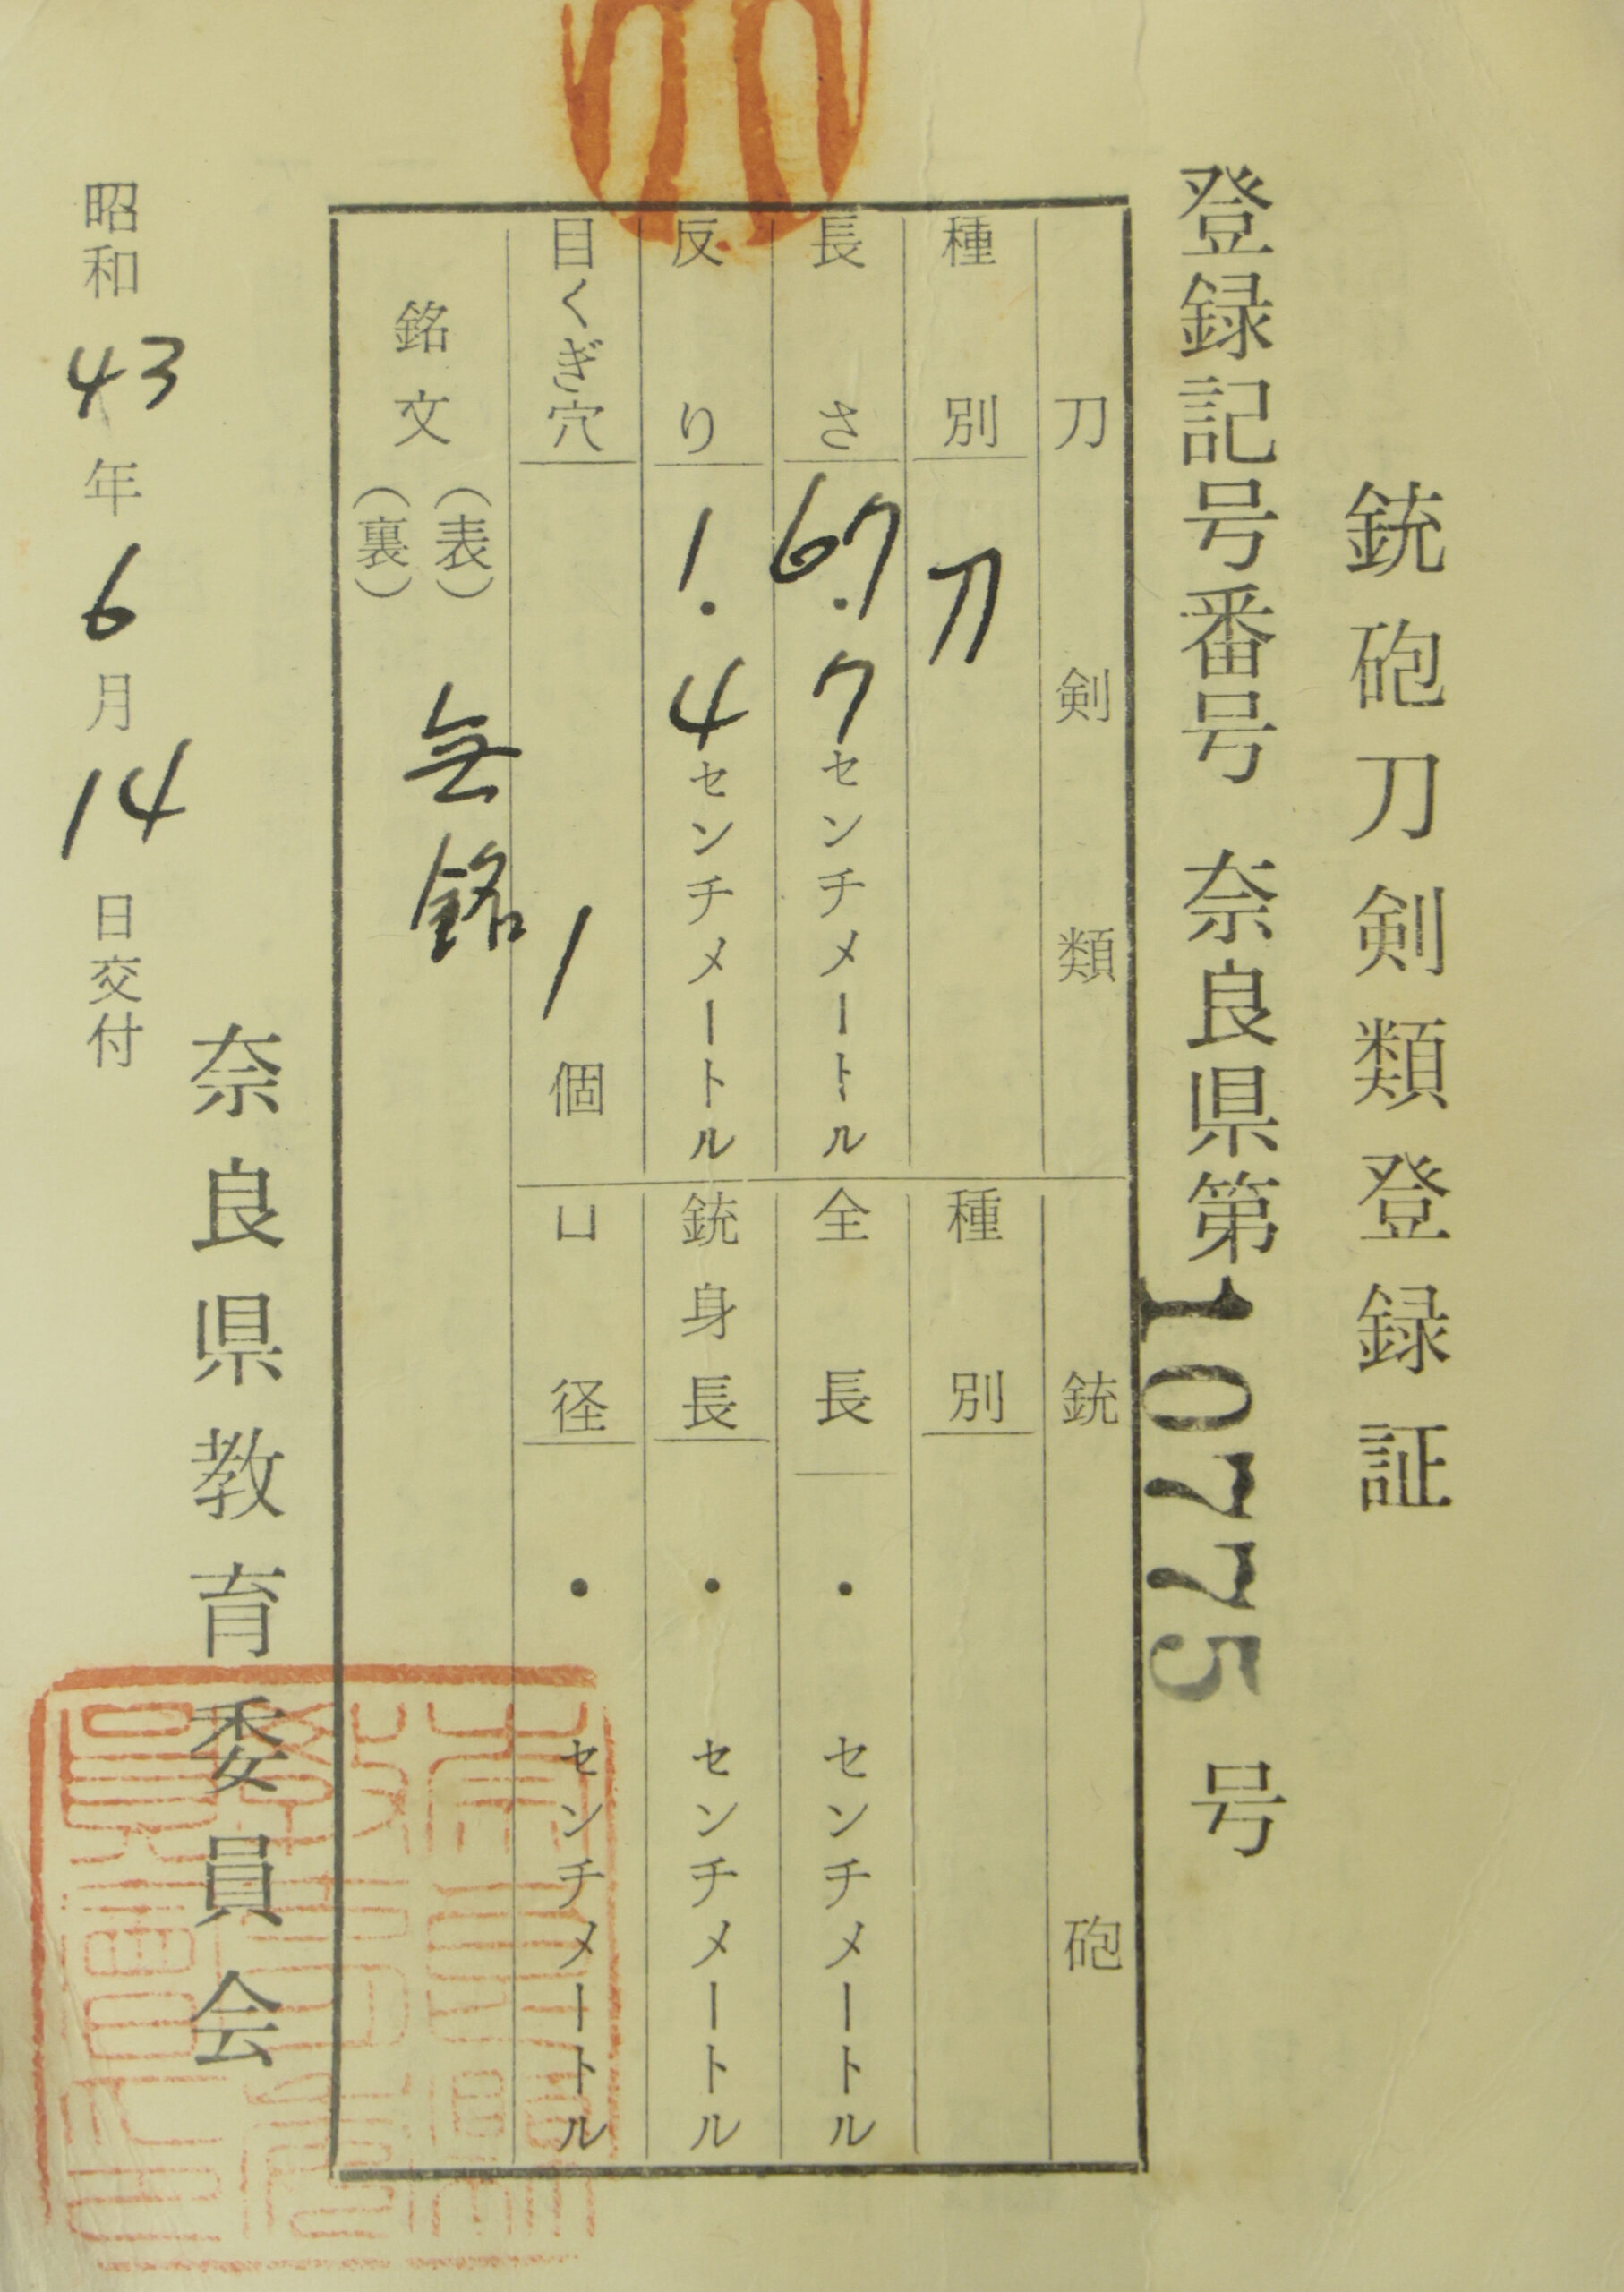 銃砲刀剣類登録証
登録記号番号 奈良県第10775号
刀剣類
種別 刀
長さ 67.7センチメートル
反り 1.4センチメートル
目くぎ穴 1個
銃砲
種別
全長 ・ センチメートル
銃身長 ・ センチメートル
口径 ・ センチメートル
銘文 (表) 無銘
(裏)
奈良県教育委員会
昭和43年6月14日交付